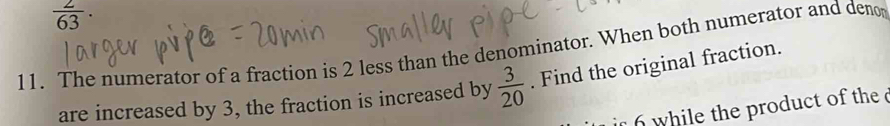 2/63.
larger pipe = 20min smaller pipe
11. The numerator of a fraction is 2 less than the denominator. When both numerator and denom
are increased by 3, the fraction is increased by 3/20. Find the original fraction.
is 6 while the product of the